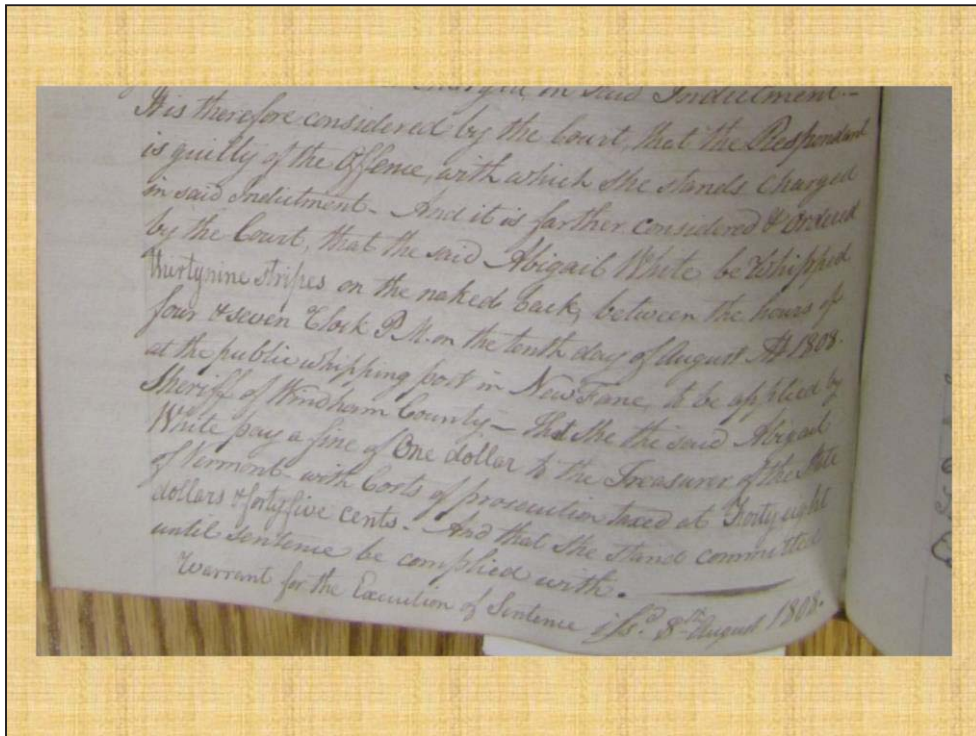 charged in said Indictment -
It is therefore considered by the Court, that the Respondent
is guilty of the Offence, with which she stands charged
in said Indictment - And it is farther considered & Ordered
by the Court, that the said Abigail White be Whipped
thirtynine stripes on the naked back, between the hours of
four & seven Clock P.M. on the tenth day of August AD 1808.
at the public whipping post in New Fane, to be applied by
Sheriff of Windham County - That she the said Abigail
White pay a fine of One dollar to the Treasurer of the State
of Vermont - with Costs of prosecution taxed at Thirty eight
dollars & forty five cents. And that she stand committed
until sentence be complied with.
Warrant for the Execution of Sentence issd. 8th August 1808.